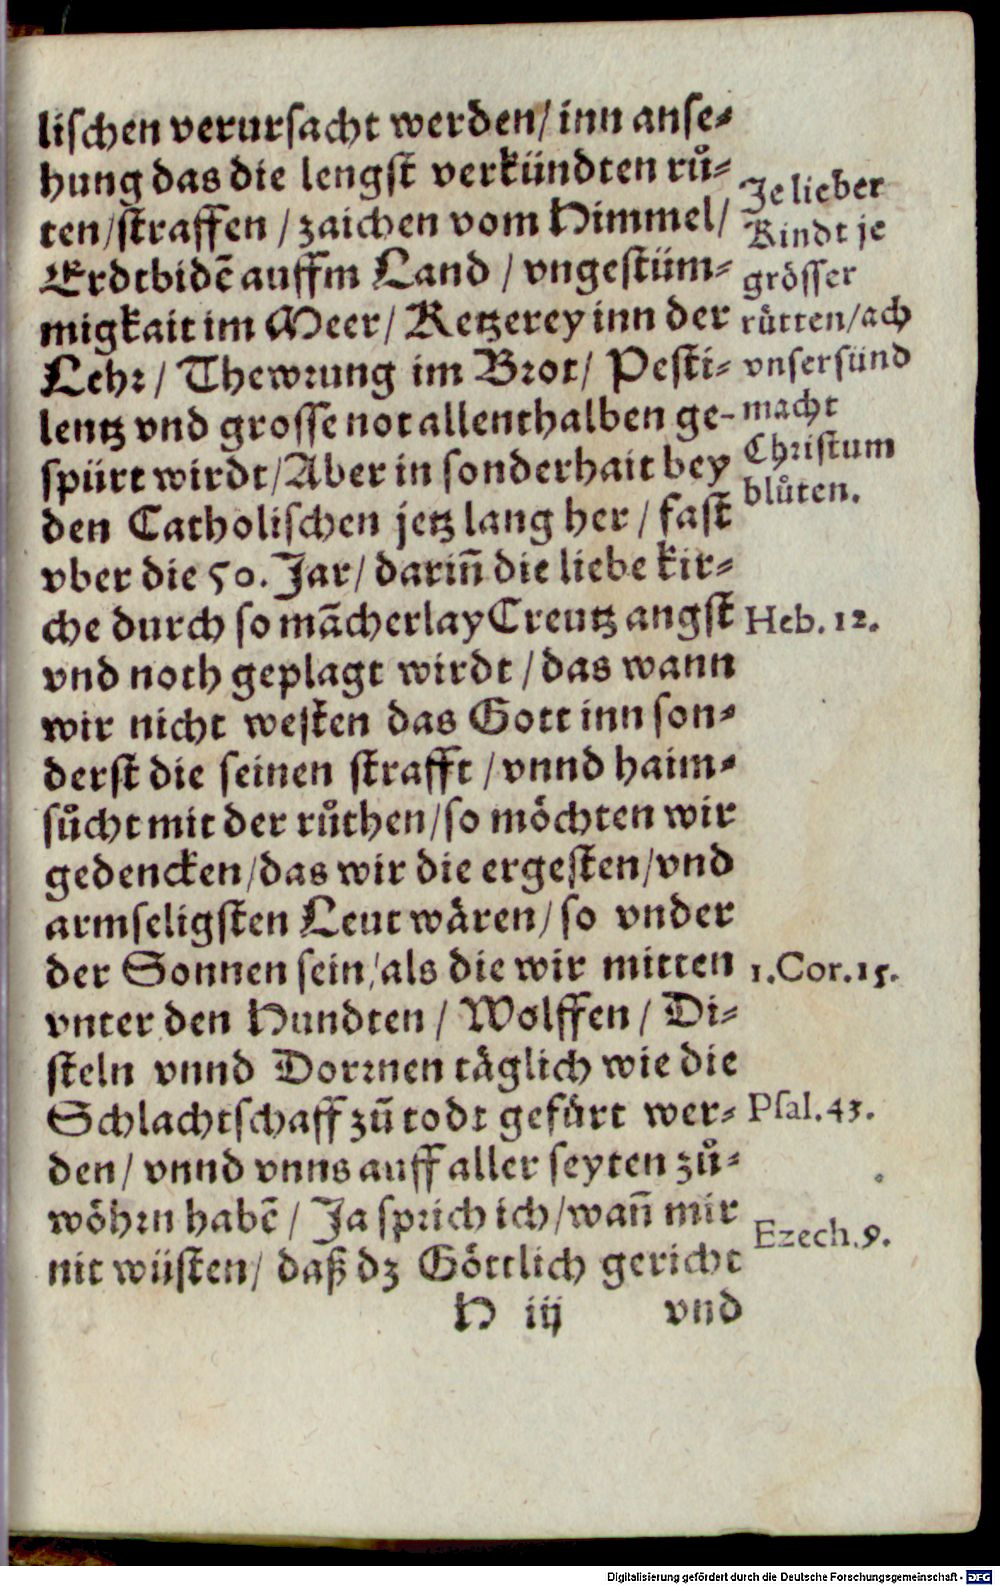 lischen verursacht werden/ inn anse-
hung das die lengst verkündten rů-
ten/straffen / zaichen vom Himmel/
Erdtbidē auffm Land / vngestüm-
migkait im Meer/ Ketzerey inn der
Lehr/ Thewrung im Brot/ Pesti-
lentz vnd grosse not allenthalben ge-
spürt wirdt/Aber in sonderhait bey
den Catholischen jetz lang her / fast
vber die 50. Jar/ dariñ die liebe kir-
che durch so mācherlay Creutz angst
vnd noth geplagt wirdt / das wann
wir nicht westen das Gott inn son-
derst die seinen strafft / vnnd haim-
sůcht mit der růthen/so möchten wir
gedencken/das wir die ergesten/vnd
armseligsten Leut wären/ so vnder
der Sonnen sein/als die wir mitten
vnter den Hundten / Wolffen / Di-
steln vnnd Dornen täglich wie die
Schlachtschaff zů todt gefürt wer-
den/ vnnd vnns auff aller seyten zů-
wöhrn habē / Ja sprich ich/wañ mir
nit wüsten/ daß dz Göttlich gericht
H iij vnd
Je lieber
Kindt je
grösser
růtten/ach
vnser sünd
macht
Christum
blůten.
Heb. 12.
1.Cor.15.
Psal.43.
Ezech.9.
Digitalisierung gefördert durch die Deutsche Forschungsgemeinschaft - DFG